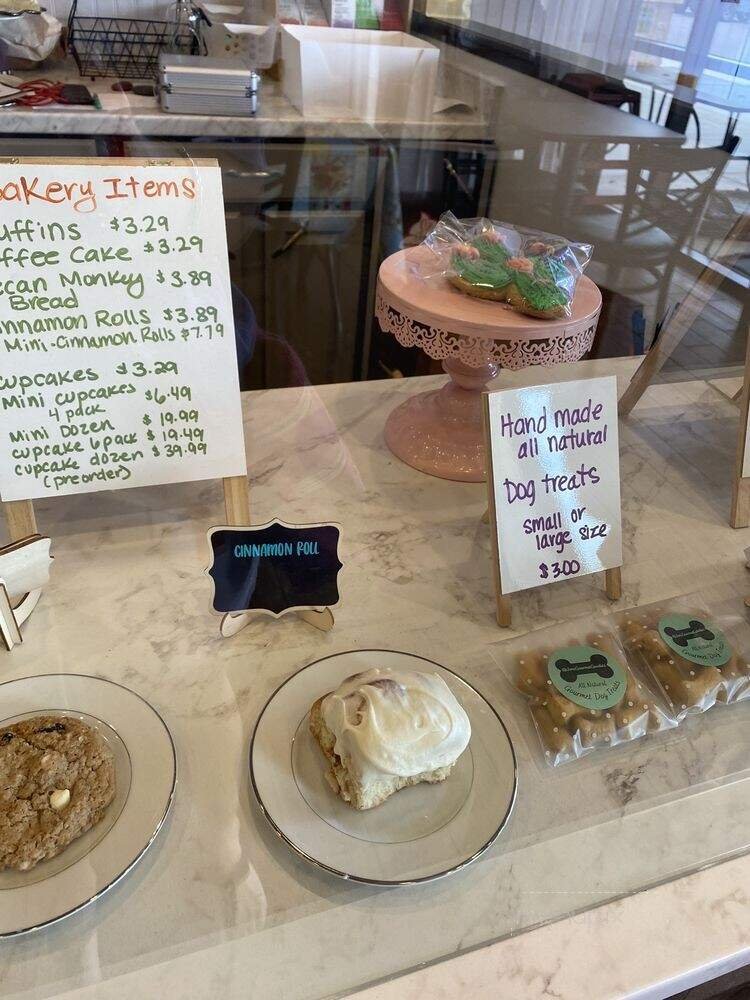 Bakery Items
uffins $3.29
ffee Cake $3.29
ecan Monkey $3.89
Bread
nnamon Rolls $3.89
Mini-Cinnamon Rolls $7.79
upcakes $3.29
Mini cupcakes $6.49
4 pack
Mini Dozen $19.99
cupcake 6 pack $19.49
cupcake dozen $39.99
(preorder)
CINNAMON ROLL
Hand made
all natural
Dog treats
small or
large size
$3.00
All Natural
Gourmet Dog Treats